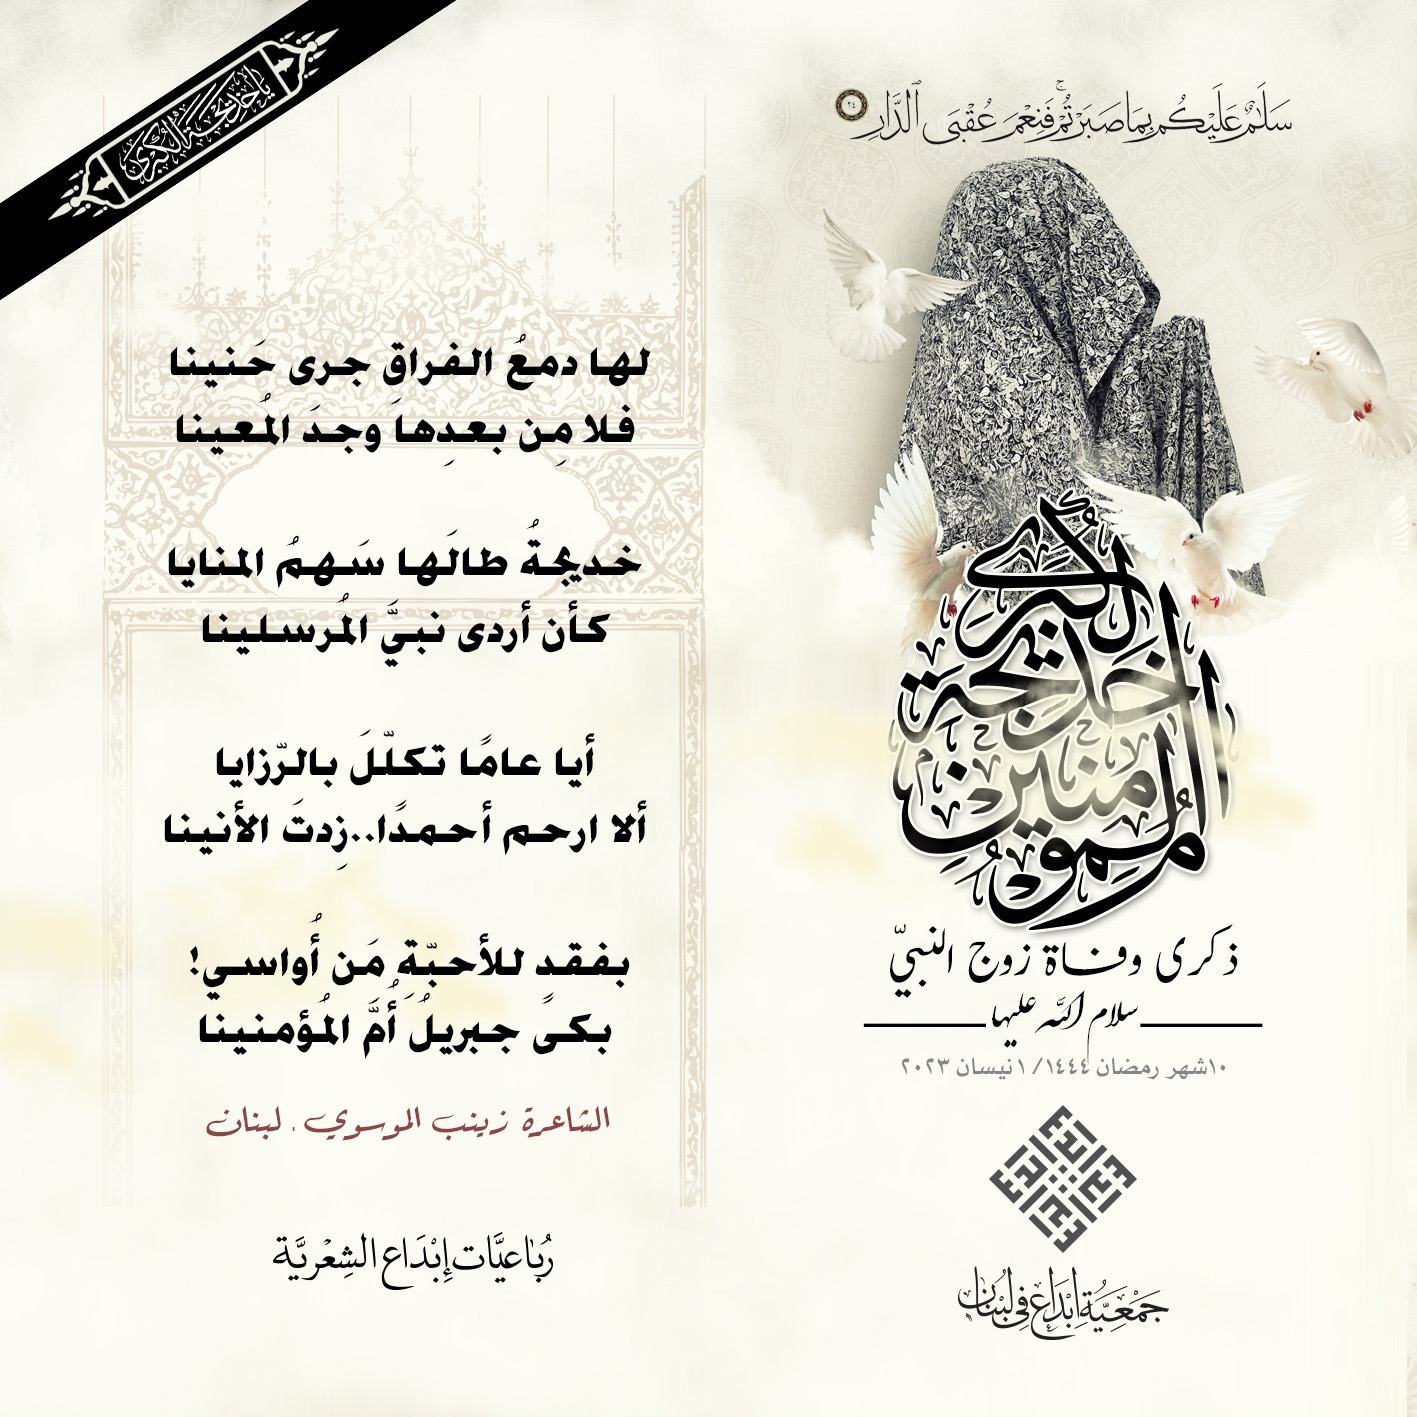 سَلَٰمٌ عَلَيْكُم بِمَا صَبَرْتُمْ ۚ فَنِعْمَ عُقْبَى ٱلدَّارِ ٢٤
أم المؤمنين خديجة الكبرى
ذكرى وفاة زوج النبيّ
سلام الله عليها
١٠شهر رمضان ١٤٤٤/ ١ نيسان ٢٠٢٣
إبداع
جَمْعِيَّةُ إِبْدَاع فِي لُبْنَان
يا خديجة الكبرى
لها دمعُ الفراقِ جرى حَنينا
فلا مِن بعدِها وجدَ المُعينا
خديجةُ طالَها سَهمُ المنايا
كأن أردى نبيَّ المُرسلينا
أيا عامًا تكلّلَ بالرّزايا
ألا ارحم أحمدًا..زِدتَ الأنينا
بفقدٍ للأحبّةِ مَن أُواسي!
بكى جبريلُ أُمَّ المُؤمنينا
الشاعرة زينب الموسوي . لبنان
رُبَاعيَّات إِبْدَاع الشِعْريَّة